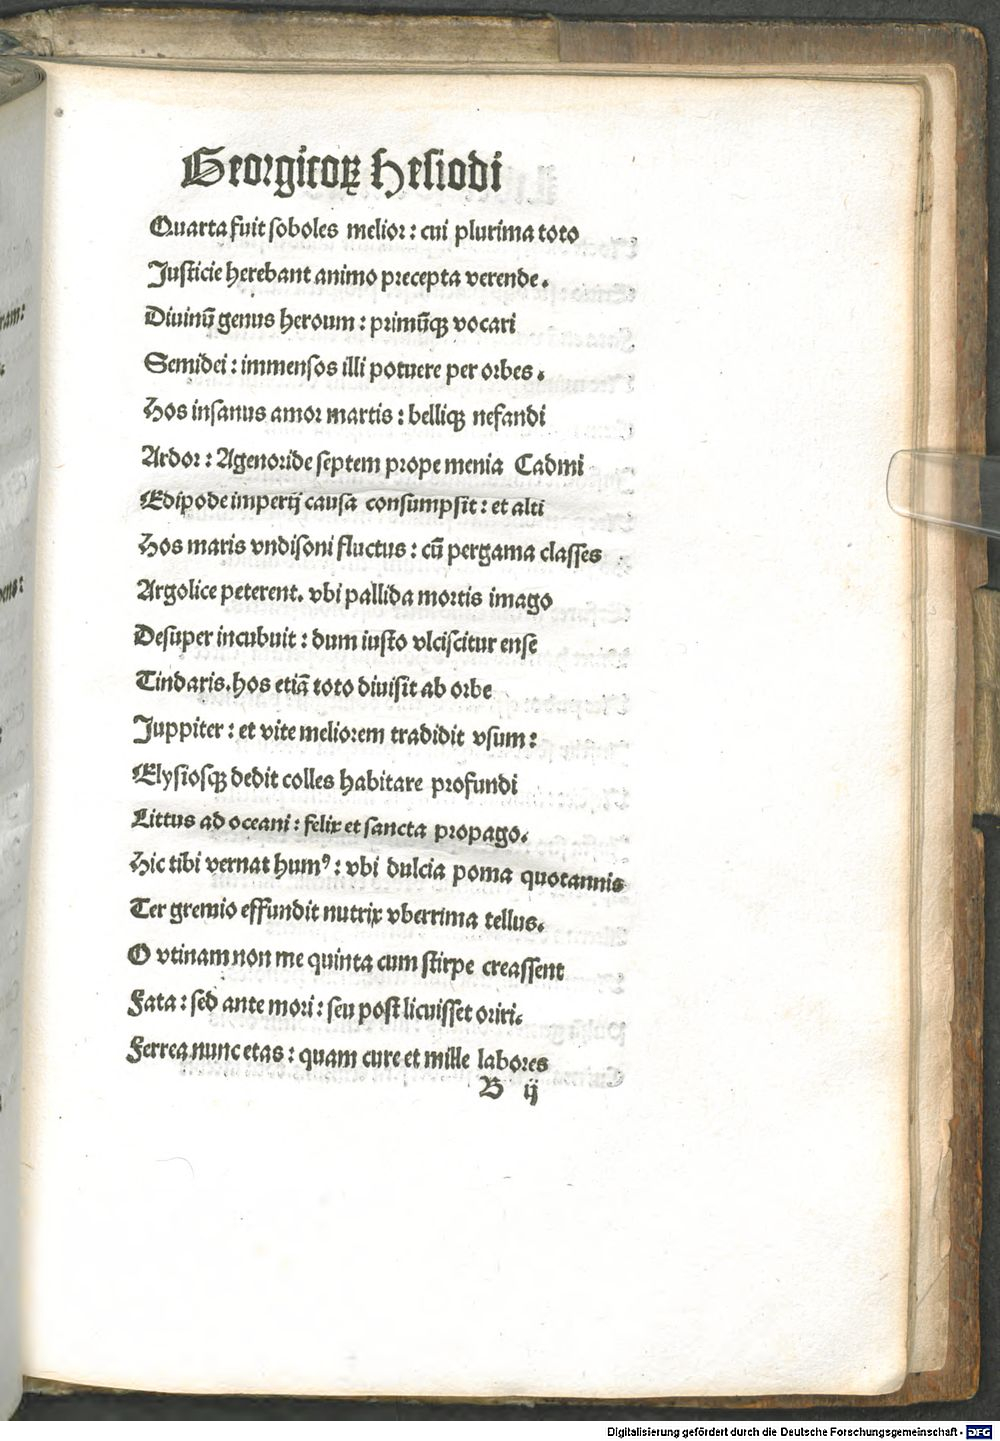 Georgicoꝝ Hesiodi
Quarta fuit soboles melior: cui plurima toto
Justicie herebant animo precepta verende.
Diuinū genus heroum: primūqꝫ vocari
Semidei: immensos illi potuere per orbes.
Hos insanus amor martis: belliqꝫ nefandi
Ardor: Agenoride septem prope menia Cadmi
Edipode imperij causa consumpsit: et alti
Hos maris vndisoni fluctus: cū pergama classes
Argolice peterent. vbi pallida mortis imago
Desuper incubuit: dum iusto vlciscitur ense
Tindaris. hos etiā toto diuisit ab orbe
Juppiter: et vite meliorem tradidit vsum:
Elysiosqꝫ dedit colles habitare profundi
Littus ad oceani: felix et sancta propago.
Hic tibi vernat humꝰ: vbi dulcia poma quotannis
Ter gremio effundit nutrix vberrima tellus.
O vtinam non me quinta cum stirpe creassent
Fata: sed ante mori: seu post licuisset oriri.
Ferrea nunc etas: quam cure et mille labores
B ij
ram:
Digitalisierung gefördert durch die Deutsche Forschungsgemeinschaft - DFG